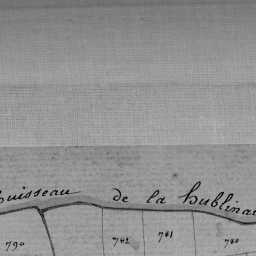 uisseau de la hublinai
790 742 741 740